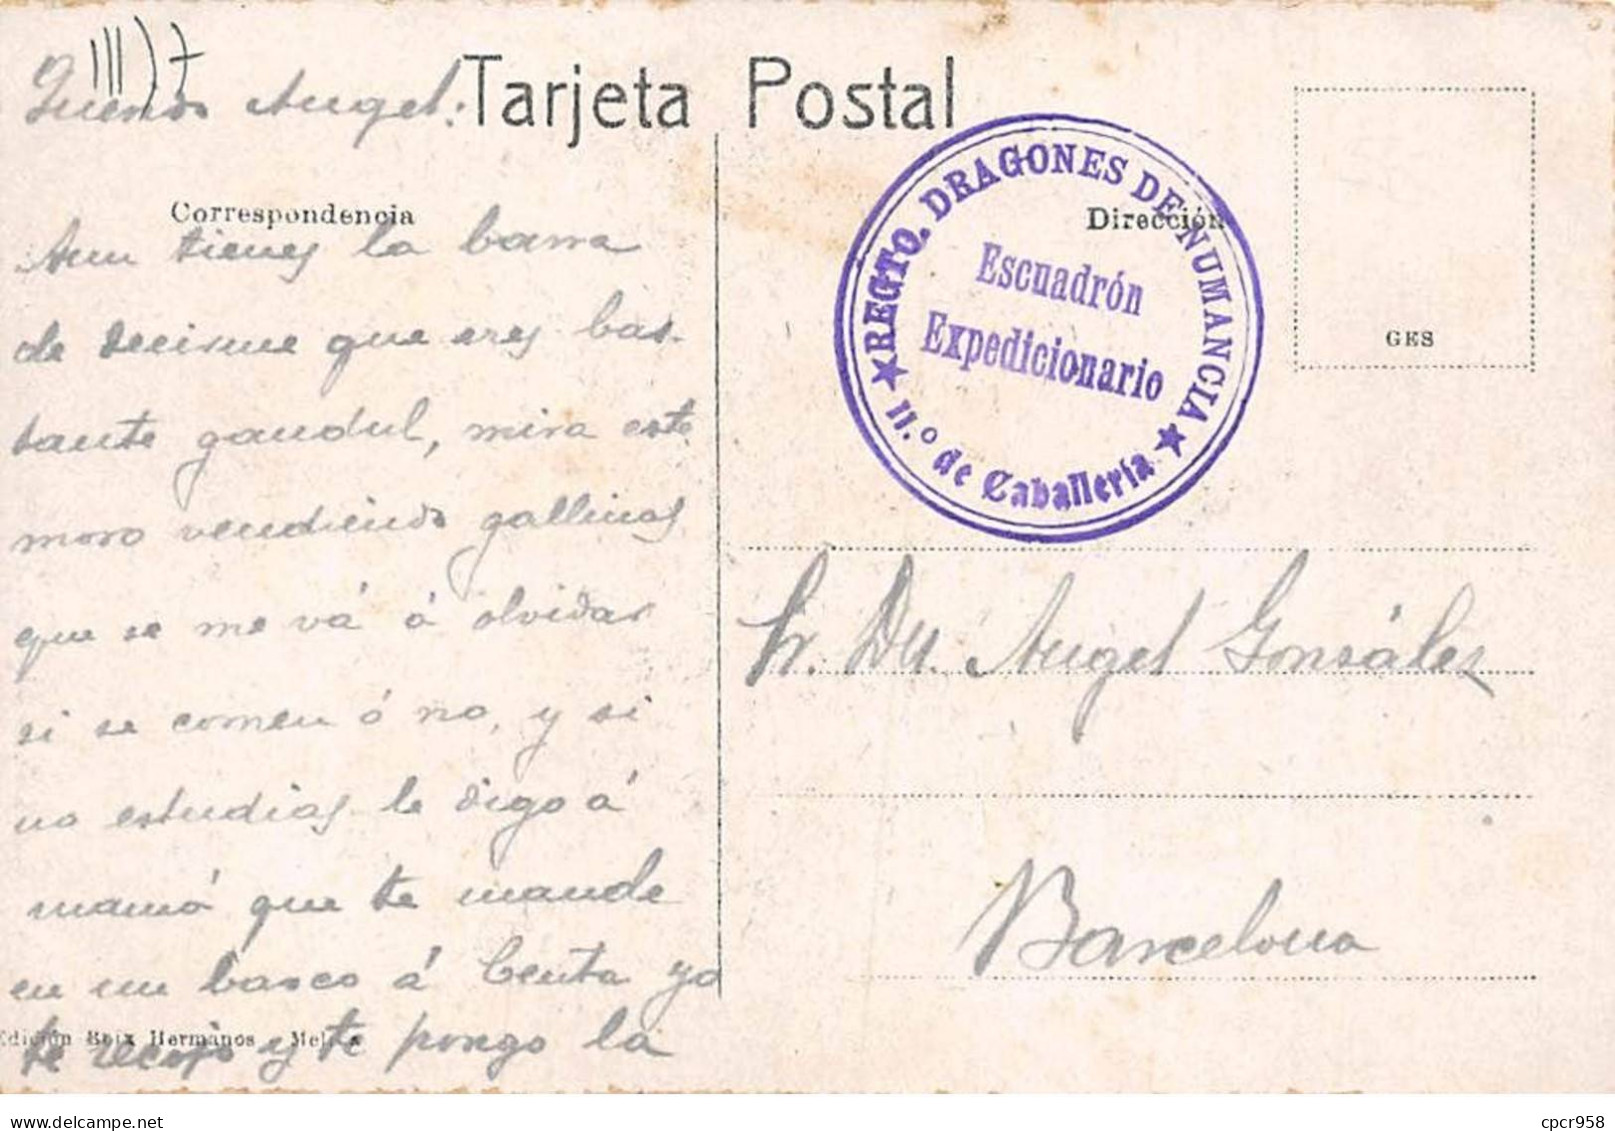 III)7
Tarjeta Postal
Querido Angel:
Correspondencia
Aun tienes la barra
de decirme que eres bas-
tante gandul, mira este
moro vendiendo gallinas
que se me vá á olvidar
si se comen ó no, y si
no estudias le digo á
mamá que te mande
en un barco á Ceuta yo
te recojo y te pongo la
Edición Boix Hermanos - Melilla
REGTO. DRAGONES DE NUMANCIA
Escuadrón
Expedicionario
★ 11.º de Caballería ★
Dirección
GES
Sr. Dn. Angel Gonsález
Barcelona
cpcr958